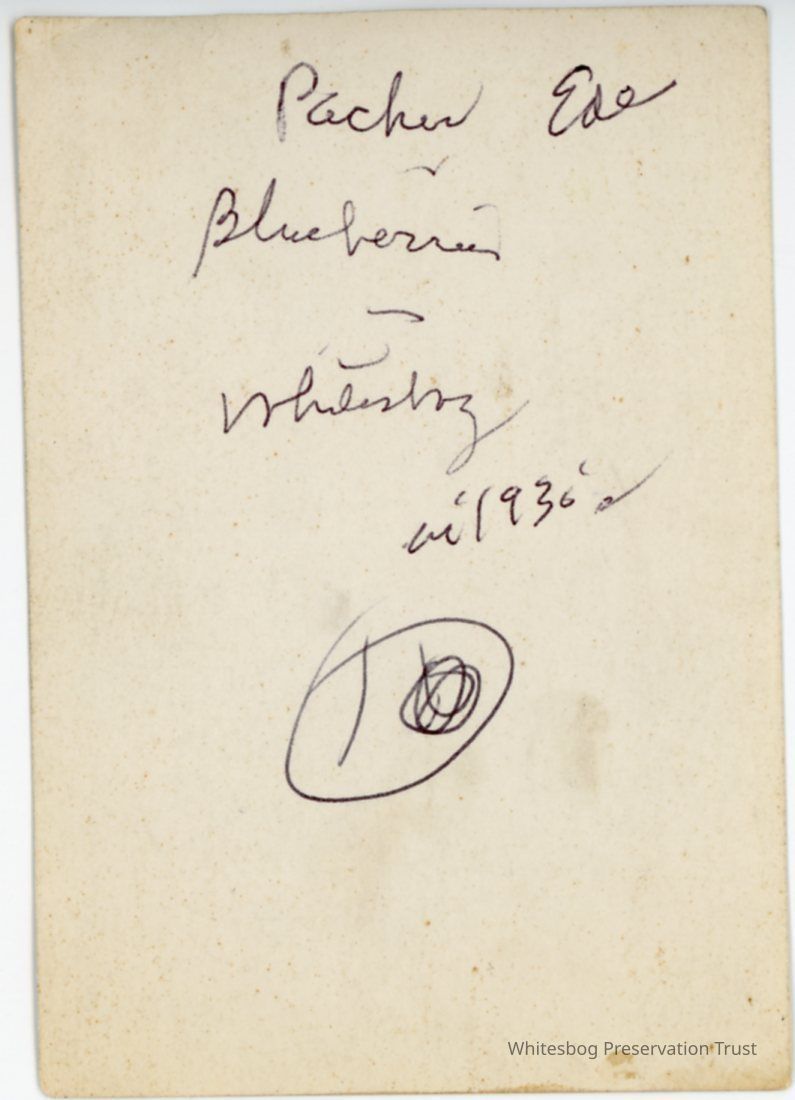 Packer
Blueberries
Whitesbog
in 1930's
Whitesbog Preservation Trust